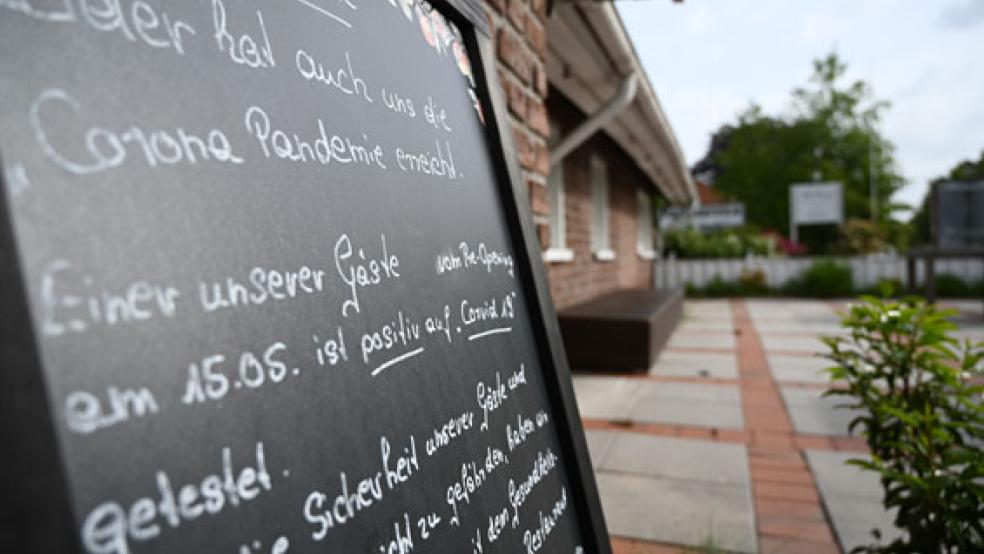 hat auch uns die
"Corona Pandemie erreicht.
Einer unserer Gäste vom Pre-Opening
am 15.05. ist positiv auf "Corvid 19"
getestet.
die Sicherheit unserer Gäste und
nicht zu gefährden, haben wir
mit dem Gesundheits-
Restaurant